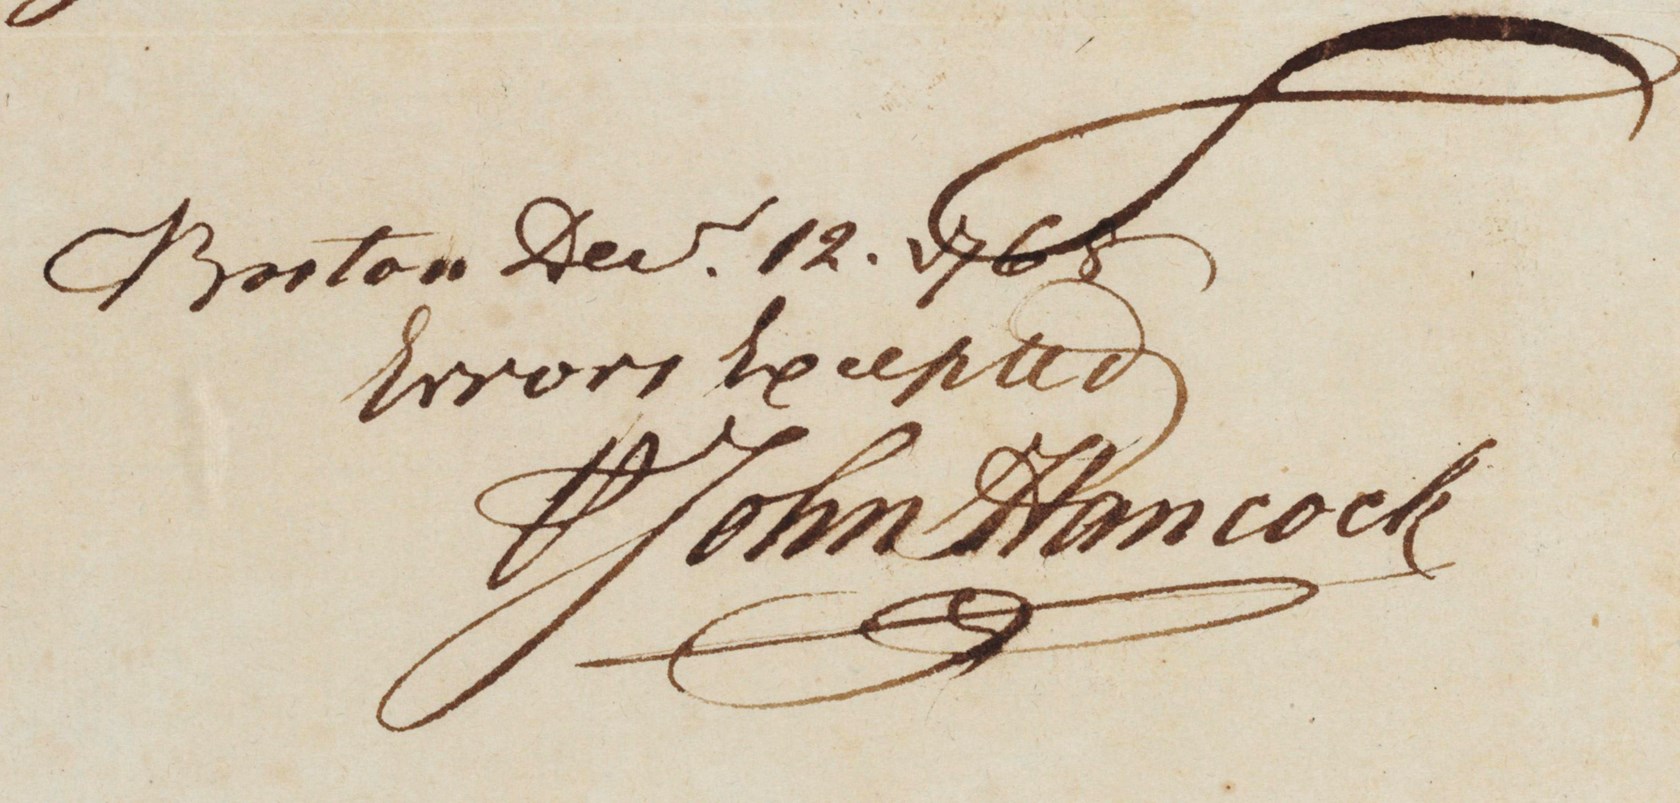 Boston Decr. 12. 1768
Errors Excepted
John Hancock